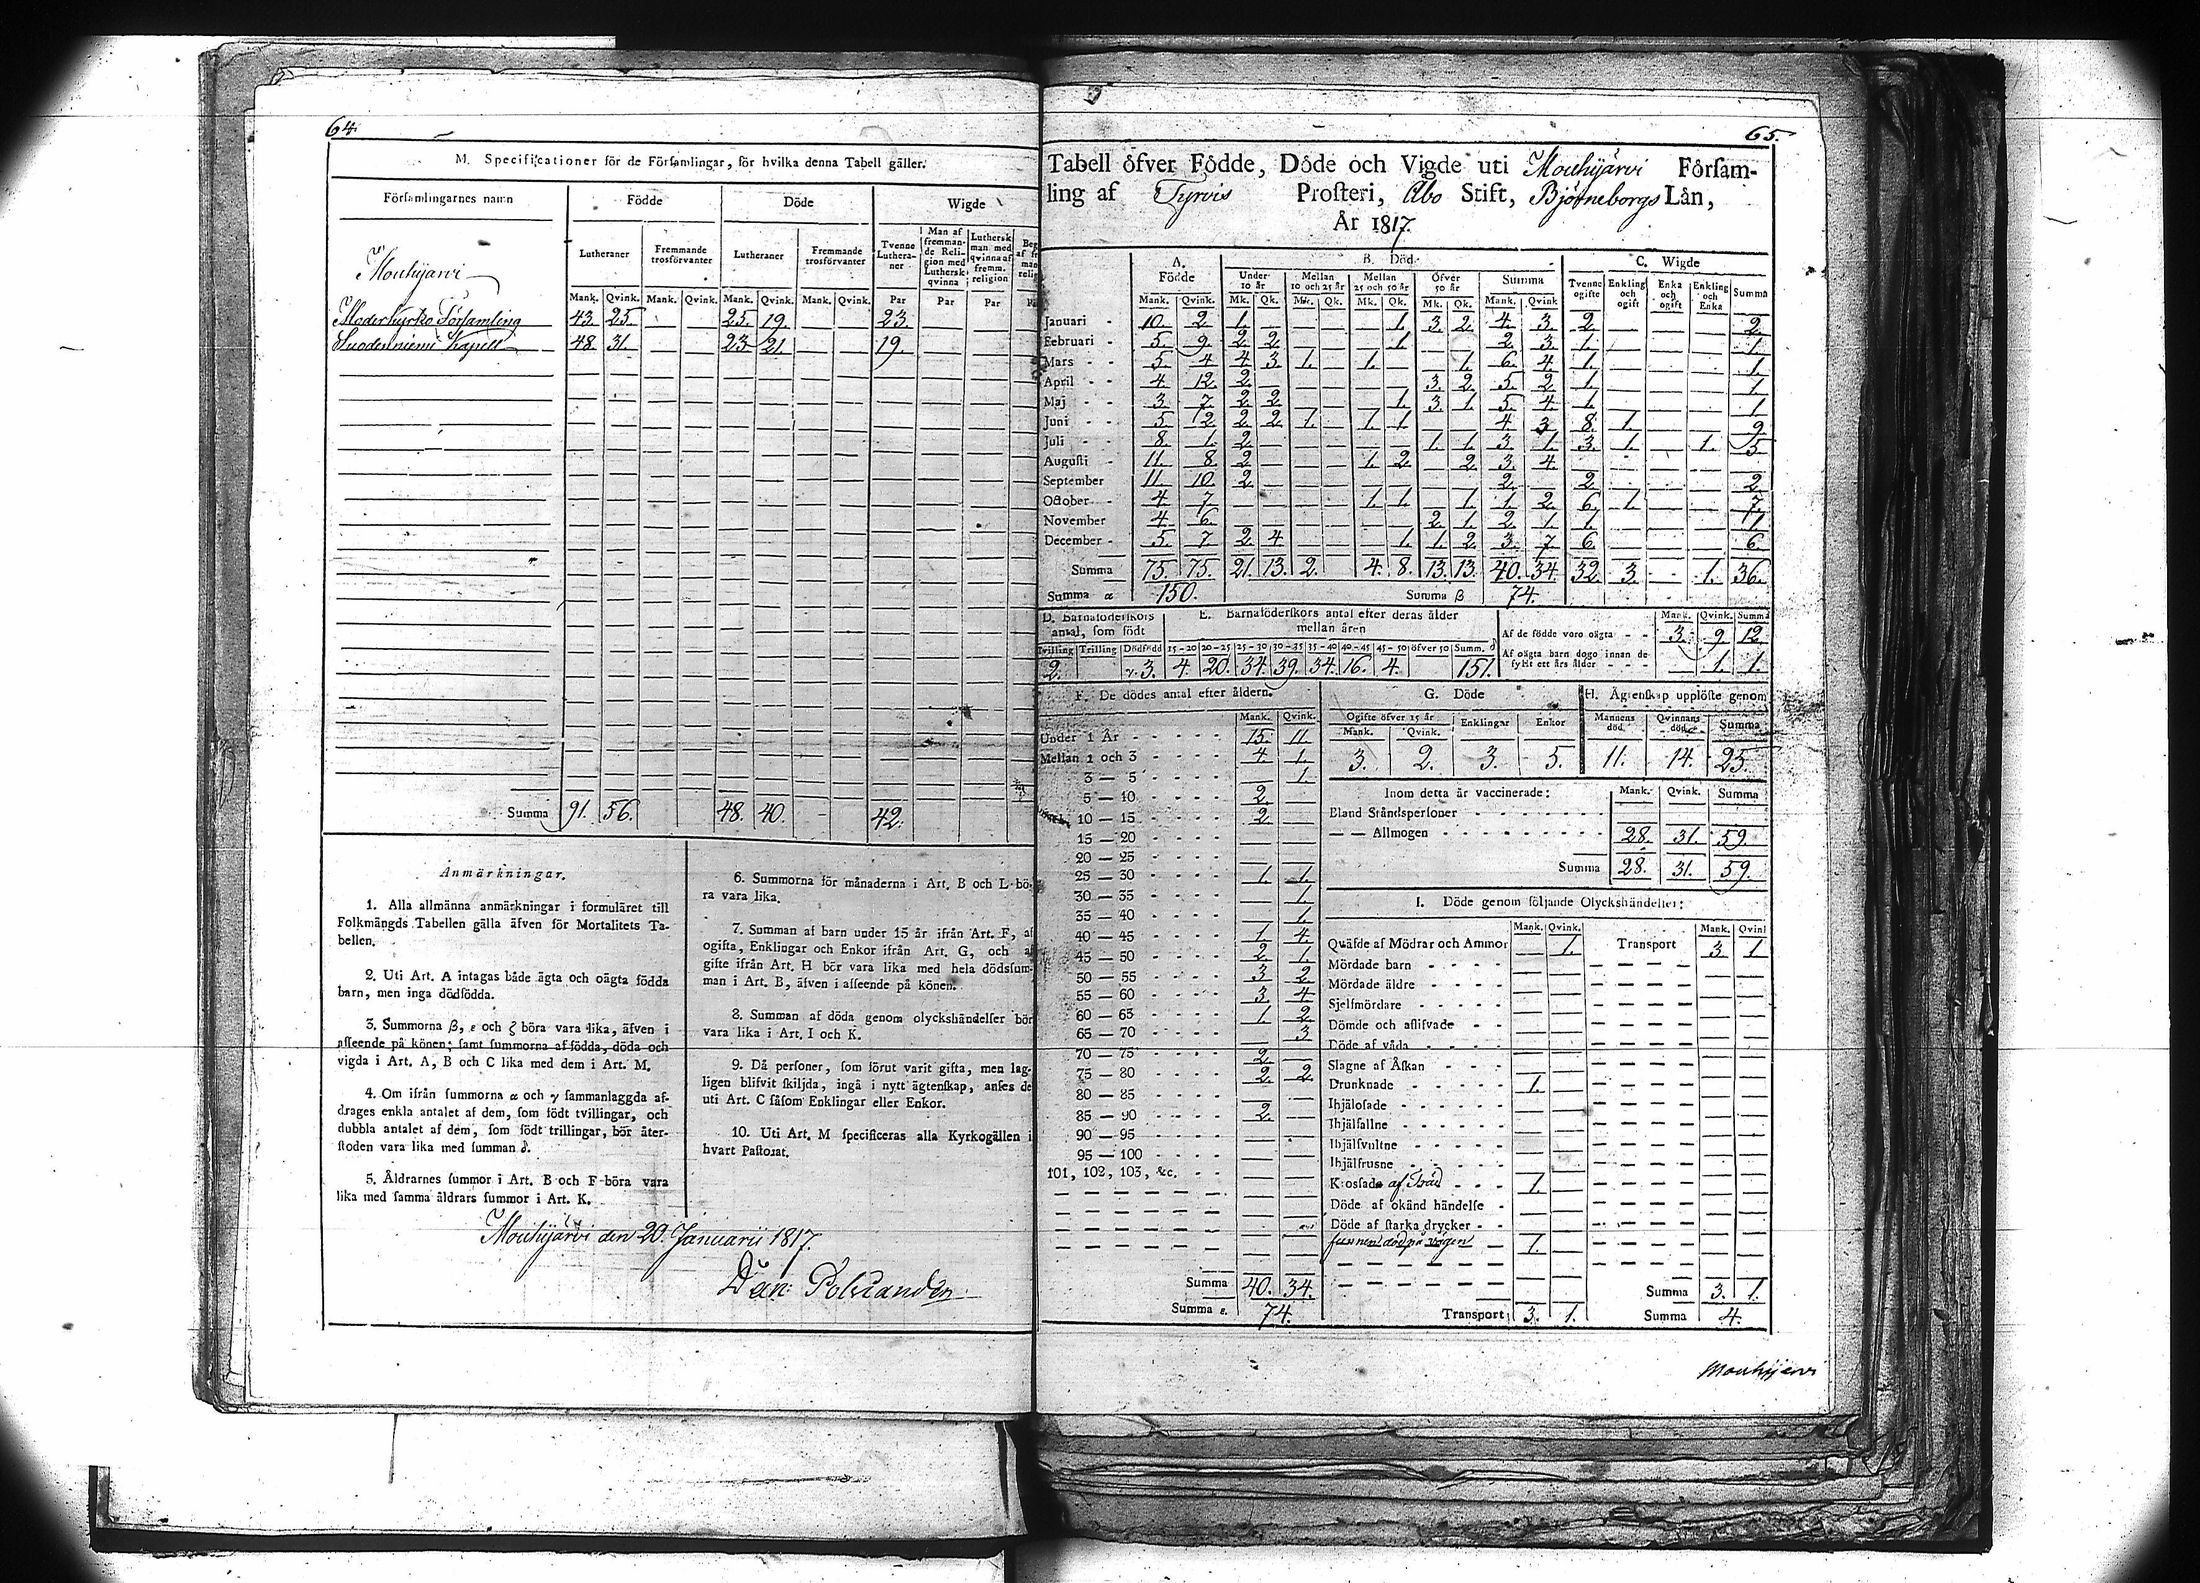 64.
M. Specificationer för de Församlingar, för hvilka denna Tabell gäller.
Församlingarnes namn | Födde | Döde | Wigde
Lutheraner | Fremmande trosförvanter | Lutheraner | Fremmande trosförvanter | Tvenne Lutheraner | Man af fremmande Religion med Luthersk qvinna | Luthersk man med qvinna af fremm. religion
Mank. Qvink. Mank. Qvink. Mank. Qvink. Mank. Qvink. Par Par Par
Mouhijärvi
Moderkyrko Församling 43. 25. — — 25. 19. — — 23. — —
Suodenniemi Kapell 48. 31. — — 23. 21. — — 19. — —
Summa 91. 56. 48. 40. 42.
Anmärkningar.
1. Alla allmänna anmärkningar i formuläret till
Folkmängds Tabellen gälla äfven för Mortalitets Ta-
bellen.
2. Uti Art. A intagas både ägta och oägta födda
barn, men inga dödfödda.
3. Summorna β, ε och ζ böra vara lika, äfven i
afseende på könen; samt summorna af födda, döda och
vigda i Art. A, B och C lika med dem i Art. M.
4. Om ifrån summorna α och γ sammanlaggda af-
drages enkla antalet af dem, som födt tvillingar, och
dubbla antalet af dem, som födt trillingar, bör åter-
stoden vara lika med summan δ.
5. Åldrarnes summor i Art. B och F böra vara
lika med samma åldrars summor i Art. K.
6. Summorna för månaderna i Art. B och L bö-
ra vara lika.
7. Summan af barn under 15 år ifrån Art. F, af
ogifta, Enklingar och Enkor ifrån Art. G, och af
gifte ifrån Art. H bör vara lika med hela dödssum-
man i Art. B, äfven i afseende på könen.
8. Summan af döda genom olyckshändelser bör
vara lika i Art. I och K.
9. Då personer, som förut varit gifta, men lag-
ligen blifvit skiljda, ingå i nytt ägtenskap, anses de
uti Art. C såsom Enklingar eller Enkor.
10. Uti Art. M specificeras alla Kyrkogällen i
hvart Pastorat.
Mouhijärvi den 20. Januarii 1817.
Dan: Polviander
65.
Tabell öfver Födde, Döde och Vigde uti Mouhijärvi Försam-
ling af Tyrvis Prosteri, Åbo Stift, Björneborgs Län,
År 1817.
A. Födde | B. Död. | C. Wigde
Under 10 år | Mellan 10 och 25 år | Mellan 25 och 50 år | Öfver 50 år | Summa | Tvenne ogifte | Enkling och ogift | Enka och ogift | Enkling och Enka | Summa
Mank. Qvink. Mk. Qk. Mk. Qk. Mk. Qk. Mk. Qk. Mank. Qvink
Januari 10. 2. 1. — — — — 1. 3. 2. 4. 3. 2. — — — 2.
Februari 5. 9. 2. 2. — — — 1. — — 2. 3. 1. — — — 1.
Mars 5. 4. 4. 3. 1. — 1. — — 1. 6. 4. 1. — — — 1.
April 4. 12. 2. — — — — — 3. 2. 5. 2. 1. — — — 1.
Maj 3. 7. 2. 2. — — — 1. 3. 1. 5. 4. 1. — — — 1
Juni 5. 2. 2. 2. 1. — 1. 1. — — 4. 3 8. 1. — — 9
Juli 8. 1. 2. — — — — — 1. 1. 3. 1. 3. 1. — 1. 5
Augusti 11. 8. 2. — — — 1. 2. — 2. 3. 4. — — — — —
September 11. 10. 2. — — — — — — — 2. — 2. — — — 2.
October 4. 7. — — — — 1. 1. — 1. 1. 2. 6. 1. — — 7.
November 4. 6. — — — — — — 2. 1. 2. 1. 1. — — — 1
December 5. 7. 2. 4. — — — 1. 1. 2. 3. 7. 6. — — — 6.
Summa 75. 75. 21. 13. 2. 4. 8. 13. 13. 40. 34. 32 3. 1. 36.
Summa α 150. Summa β 74.
D. Barnaföderskors antal, som födt | E. Barnaföderskors antal efter deras ålder mellan åren
Tvilling Trilling Dödfödd 15-20 20-25 25-30 30-35 35-40 40-45 45-50 öfver 50 Summ. δ
2. γ. 3. 4. 20. 34. 39. 34. 16. 4. 151.
Mank. Qvink. Summa
Af de födde voro oägta 3. 9. 12.
Af oägta barn dogo innan de
fyllt ett års ålder 1. 1.
F. De dödes antal efter åldern.
Mank. Qvink.
Under 1 År 15. 11.
Mellan 1 och 3 4. 1.
3 — 5 — 1.
5 — 10 2. —
10 — 15 2. —
15 — 20 — —
20 — 25 — —
25 — 30 1. 1.
30 — 35 — 1.
35 — 40 — 1.
40 — 45 1. 4.
45 — 50 2. 1.
50 — 55 3. 2.
55 — 60 3. 4.
60 — 65 1. 2.
65 — 70 — 3
70 — 75 2. —
75 — 80 2. 2.
80 — 85 — —
85 — 90 2. —
90 — 95 — —
95 — 100 — —
101, 102, 103, &c. — —
Summa 40. 34.
Summa ε. 74.
G. Döde
Ogifte öfver 15 år | Enklingar | Enkor
Mank. Qvink.
3. 2. 3. 5.
H. Ägtenskap upplöste genom
Mannens död. Qvinnans död. Summa
11. 14. 25.
Inom detta år vaccinerade: Mank. Qvink. Summa
Bland Ståndspersoner
— — Allmogen 28. 31. 59.
Summa 28. 31. 59.
I. Döde genom följande Olyckshändelser:
Mank. Qvink. Mank. Qvink
Quäfde af Mödrar och Ammor — 1. Transport 3. 1
Mördade barn
Mördade äldre
Sjelfmördare
Dömde och aflifvade
Döde af våda
Slagne af Åskan
Drunknade 1.
Ihjälosade
Ihjälfallne
Ihjälsvultne
Ihjälfrusne
Krossade af Träd 1.
Döde af okänd händelse
Döde af starka drycker
funnen död på vägen 1.
Summa 3. 1.
Transport 3. 1. Summa 4.
Mouhijervi